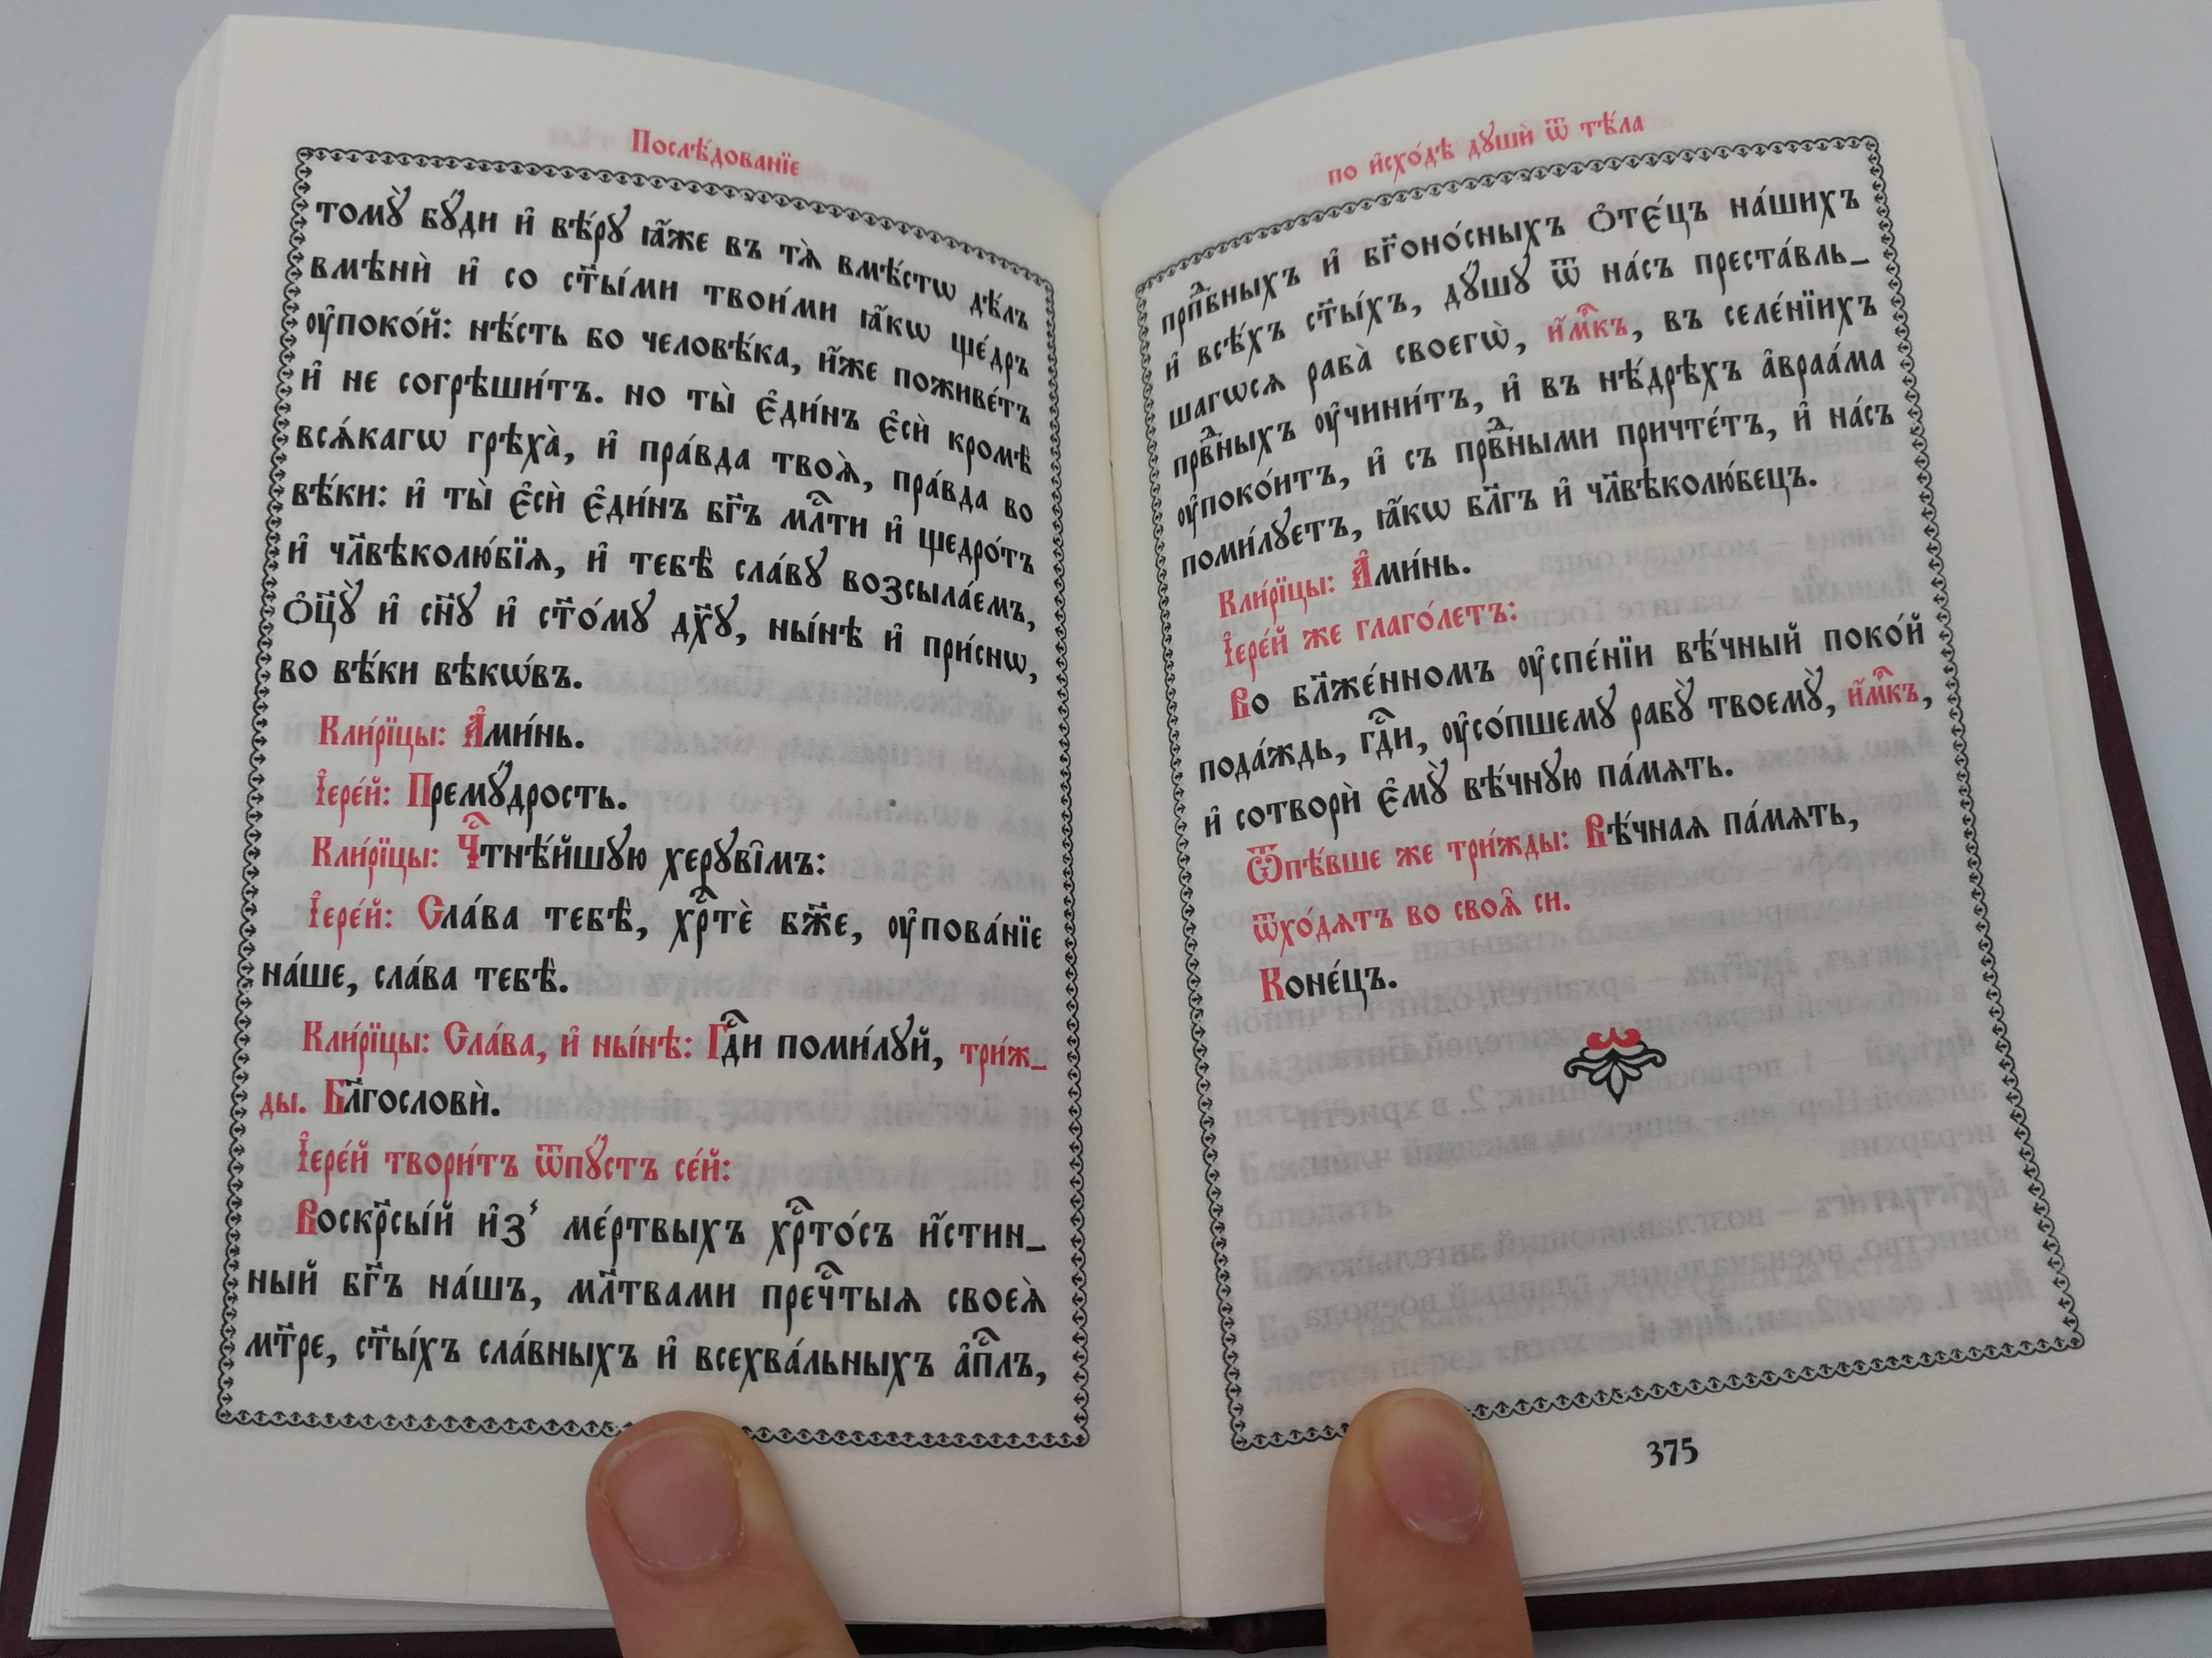 Послѣ́дованїе
томꙋ̀ бꙋ́ди и҆ вѣ́рꙋ ꙗ҆́же въ тѧ̀ вмѣ́стѡ дѣ́лъ
вмѣнѝ и҆ со ст҃ы́ми твои́ми ꙗ҆́кѡ ще́дръ
ᲂу҆поко́й: нѣ́сть бо человѣ́ка, и҆́же поживе́тъ
и҆ не согрѣши́тъ. но ты̀ є҆ди́нъ є҆сѝ кромѣ̀
всѧ́кагѡ грѣха̀, и҆ пра́вда твоѧ̀, пра́вда во
вѣ́ки: и҆ ты̀ є҆сѝ є҆ди́нъ бг҃ъ млⷭ҇ти и҆ щедро́тъ
и҆ чл҃вѣколю́бїѧ, и҆ тебѣ̀ сла́вꙋ возсыла́емъ,
ѻ҆ц҃ꙋ̀ и҆ сн҃ꙋ и҆ ст҃о́мꙋ дх҃ꙋ, ны́нѣ и҆ при́снѡ,
во вѣ́ки вѣкѡ́въ.
Кли́рїцы: А҆ми́нь.
І҆ере́й: Премꙋ́дрость.
Кли́рїцы: Чⷭ҇тнѣ́йшꙋю херꙋві̑мъ:
І҆ере́й: Сла́ва тебѣ̀, хрⷭ҇тѐ бж҃е, ᲂу҆пова́нїе
на́ше, сла́ва тебѣ̀.
Кли́рїцы: Сла́ва, и҆ ны́нѣ: Гдⷭ҇и поми́лꙋй, три́ж_
ды. Бл҃гословѝ.
І҆ере́й твори́тъ ѿпꙋ́стъ се́й:
Воскр҃сы́й и҆з̾ ме́ртвыхъ хрⷭ҇то́съ и҆́стин_
ный бг҃ъ на́шъ, мл҃твами пречⷭ҇тыѧ своеѧ̀
мт҃ре, ст҃ы́хъ сла́вныхъ и҆ всехва́льныхъ а҆пⷭ҇лъ,
по и҆схо́дѣ дꙋшѝ ѿ тѣ́ла
прпⷣбныхъ и҆ бг҃оно́сныхъ ѻ҆тє́цъ на́шихъ
и҆ всѣ́хъ ст҃ы́хъ, дꙋ́шꙋ ѿ на́съ преста́вль_
шагѡсѧ раба̀ своегѡ̀, и҆́мⷬ҇къ, въ селе́нїихъ
првⷣныхъ ᲂу҆чини́тъ, и҆ въ нѣ́дрѣхъ а҆враа́ма
ᲂу҆поко́итъ, и҆ съ првⷣными причте́тъ, и҆ на́съ
поми́лꙋетъ, ꙗ҆́кѡ бл҃гъ и҆ чл҃вѣколю́бецъ.
Кли́рїцы: А҆ми́нь.
І҆ере́й же глаго́летъ:
Во бл҃же́нномъ ᲂу҆спе́нїи вѣ́чный поко́й
пода́ждь, гдⷭ҇и, ᲂу҆со́пшемꙋ рабꙋ̀ твоемꙋ̀, и҆́мⷬ҇къ,
и҆ сотворѝ є҆мꙋ̀ вѣ́чнꙋю па́мѧть.
Ѿпѣ́вше же три́жды: Вѣ́чнаѧ па́мѧть,
ѿхо́дѧтъ во своѧ̑ си.
Коне́цъ.
375